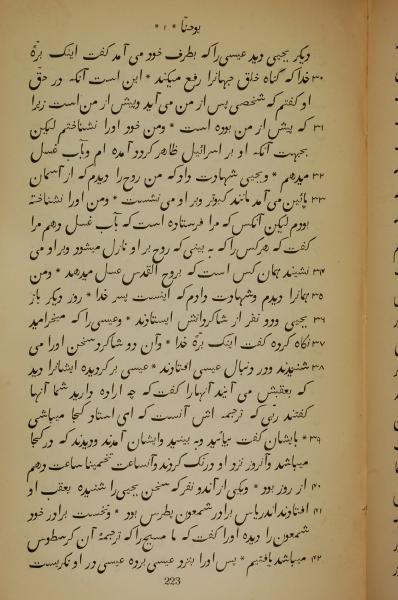 یوحنّا * ۱ *
دیکر یحیی دید عیسی را که بطرف خود می آمد کفت اینک برّهٔ
۳۰ خدا که کناه خلق جهانرا رفع میکند * این است آنکه در حقّ
او کفتم که شخصی پس از من می آید و پیش از من است زیرا
۳۱ که پیش از من بوده است * و من خود اورا نشناختم لیکن
بجهت آنکه او بر اسرائیل ظاهر کردد آمده ام و بآب غسل
۳۲ میدهم * و یحیی شهادت داد که من روح را دیدم که از آسمان
۳۳ پائین می آمد مانند کبوتر و بر او می نشست * و من اورا نشناخته
بودم لیکن آنکس که مرا فرستاده است که بآب غسل دهم مرا
کفت که هر کس را که به بینی که روح بر او نازل میشود و بر او می
۳۴ نشیند همان کس است که بروح القدس غسل میدهد * و من
۳۵ همانرا دیدم و شهادت دادم که اینست پسر خدا * روز دیکر باز
۳۶ یحیی و دو نفر از شاکردانش ایستادند * و عیسی را که میخرامید
۳۷ نکاه کرده کفت اینک برّه خدا * و آن دو شاکرد سخن اورا می
۳۸ شنیدند و در دنبال عیسی افتادند * عیسی بر کردیده ایشانرا دید
که بعقبش می آیند آنهارا کفت که چه اراده دارید شما آنها
کفتند ربّی که ترجمه اش آنست که ای استاد کجا میباشی
۳۹ * بایشان کفت بیائید و به بینید و ایشان آمدند و دیدند که در کجا
میباشد و آنروز نزد او درنک کردند و آنساعت تخمیناً ساعت دهم
۴۰ از روز بود * و یکی از آندو نفر که سخن یحیی را شنیده بعقب او
۴۱ افتادند اندریاس برادر شمعون بطرس بود * و نخست برادر خود
شمعون را دیده اورا کفت که ما مسیح را که ترجمهٔ آن کرسطوس
۴۲ میباشد یافتیم * پس اورا بنزد عیسی برده عیسی در او نکریست
223